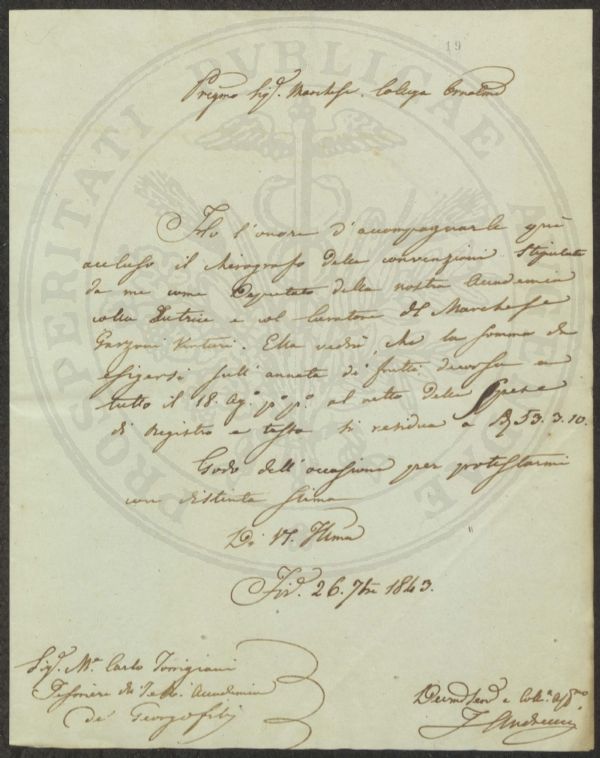 19
Pregmo Sigr. Marchese Collega Ornatmo
Ho l'onore d'accompagnarle quì
accluso il chirografo delle convenzioni stipulate
da me come Deputato della nostra Accademia
colla Tutrice e col Curatore del Marchese
Garzoni Venturi. Ella vedrà, che la somma da
esigersi sull'annata di frutti decorsa a
tutto il 18. Ago. po. po. al netto delle Spese
di Registro e tassa si residua a 53. 3. 10.
Godo dell'occasione per protestarmi
con distinta stima
Di VS. Illma
Fir. 26. 7bre 1843.
Sigr. Mse Carlo Torrigiani
Tesoriere dell' Accademia
dei Georgofili
Devmo Servo e Coll.
PROSPERITATI PVBLICAE AVGENDAE